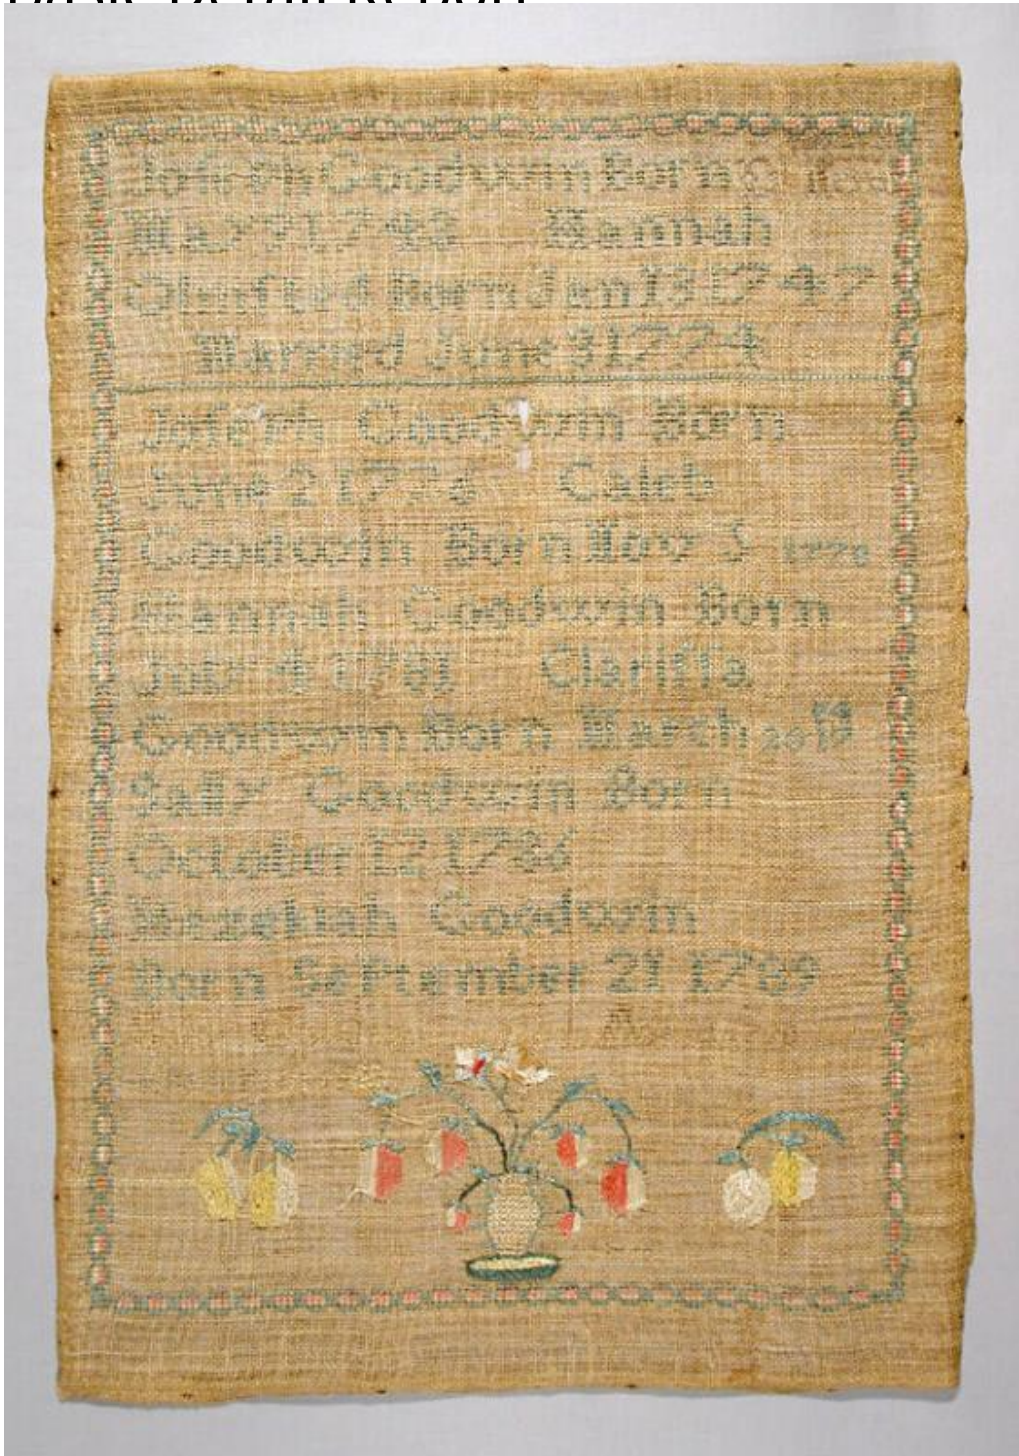 Joseph Goodwin Born
1748 Hannah
Olmsted Born Jan 13 1747
Married June 3 1774
Joseph Goodwin Born
June 2 1776 Caleb
Goodwin Born Nov 5 1778
Hannah Goodwin Born
4 1781 Clarissa
Goodwin Born March 20
Sally Goodwin Born
October 12 1786
Hezekiah Goodwin
Born September 21 1789